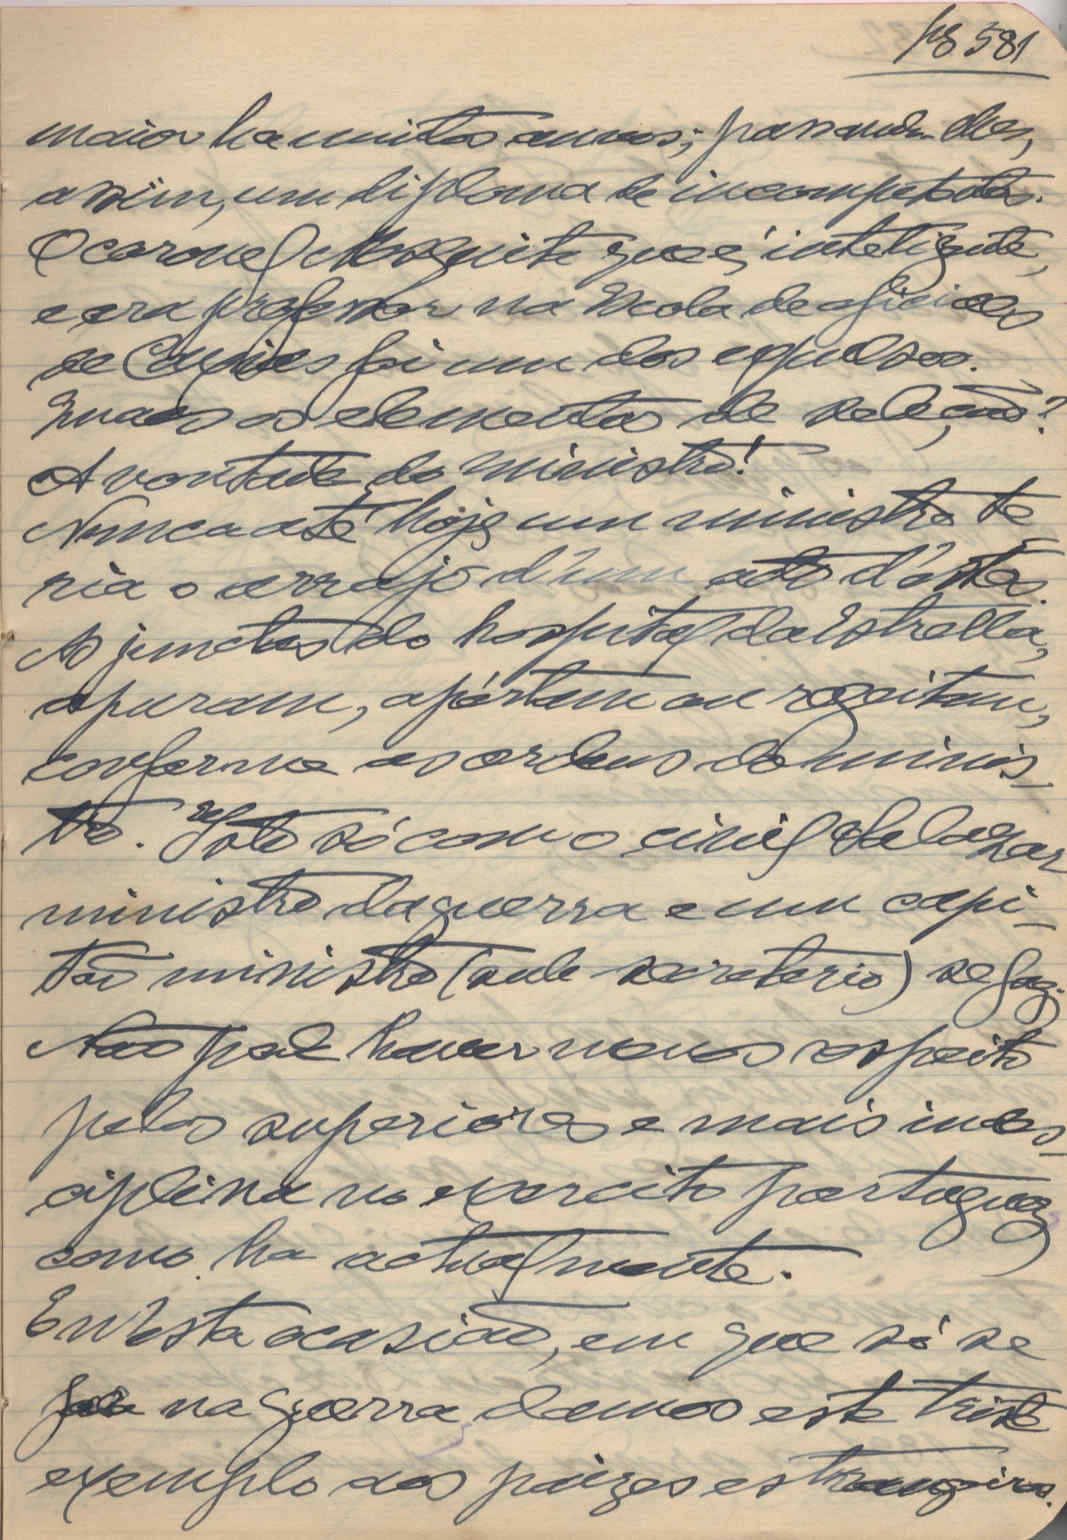 pg 581
maior ha muitos annos; passando-lhes,
assim, um diploma de incompetentes.
O coronel Mosquito que é inteligente,
e era professor na Escola de oficiaes
de Caxias foi um dos expulsos.
Quaes os elementos de seleção?
A vontade do ministro!
Nunca até hoje um ministro te
ria o arrojo d'um ato d'estes.
As junctas do hospital da Estrella,
apuram, apártam ou regeitam,
conforme as ordens do minis-
tro. Isto só com o civil Salazar
ministro da guerra e um capi-
tão ministro (sub secretario) se faz.
Não pode haver menos respeito
pelos superiores e mais indes-
ciplina no exercito portuguez
como ha actualmente.
En'esta ocasião, em que só se
fala na guerra damos este triste
exemplo aos paizes estrangeiros.